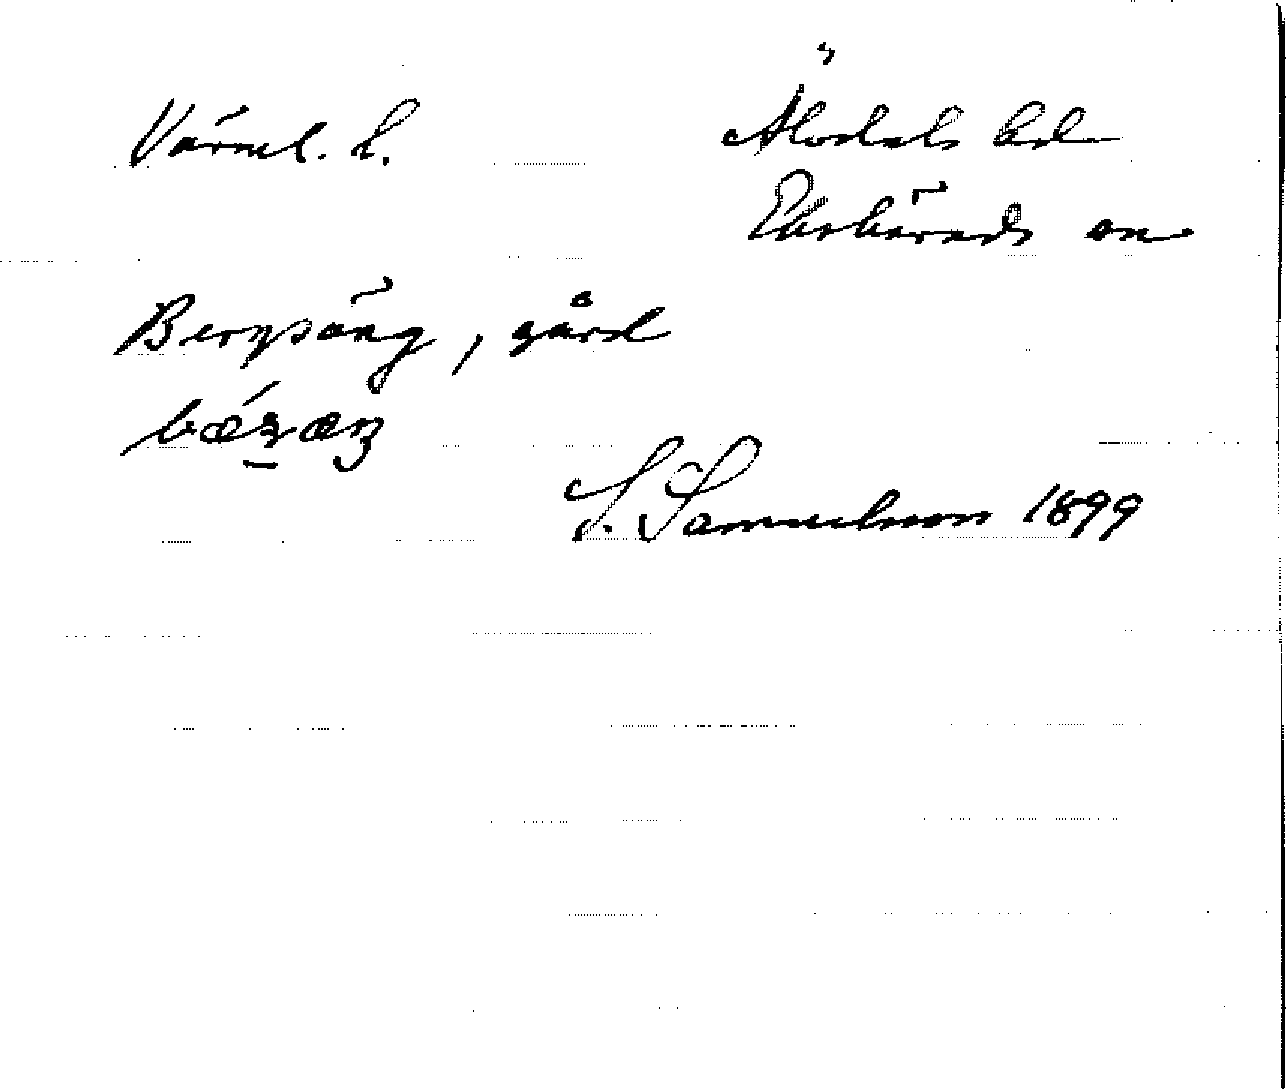 Värml. l. Älvdals hd
Ekshärads sn
Bergsäng, gård
S. Samuelsson 1899